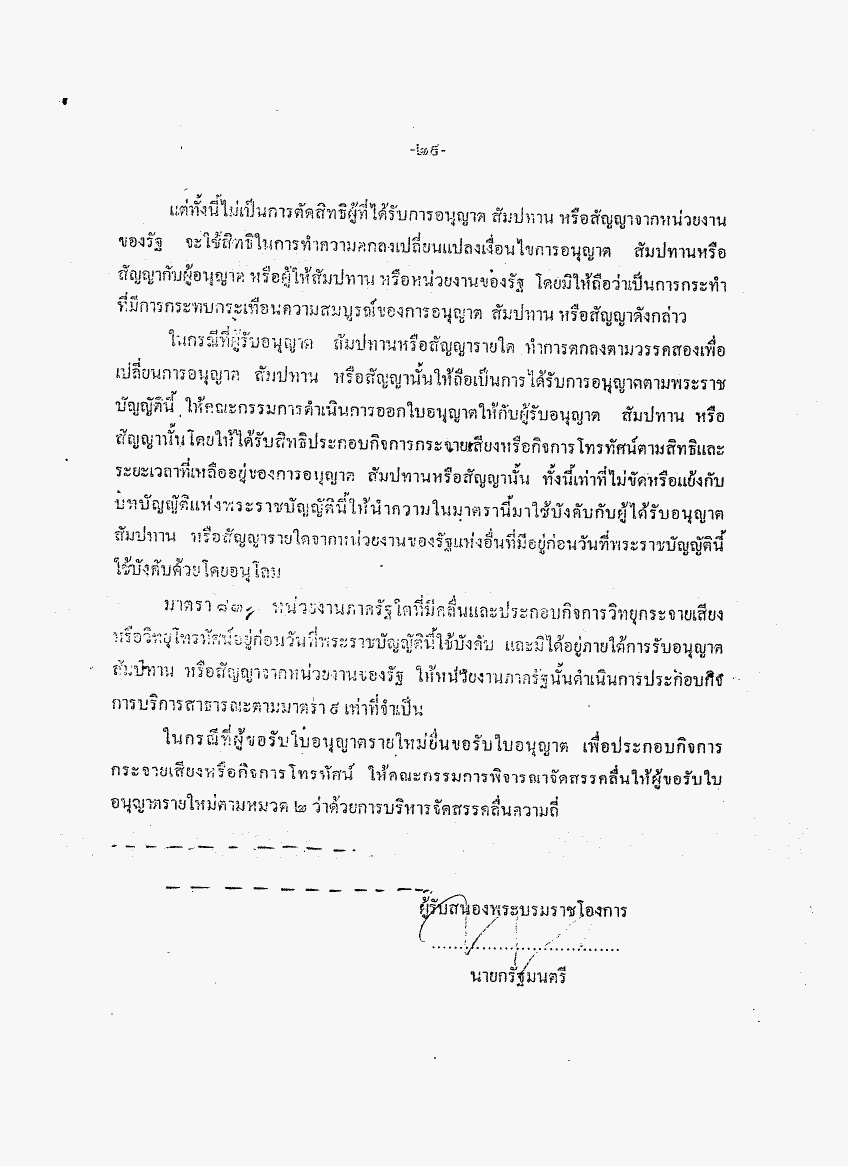 -๒๕-
แต่ทั้งนี้ไม่เป็นการตัดสิทธิผู้ที่ได้รับการอนุญาต สัมปทาน หรือสัญญาจากหน่วยงาน
ของรัฐ จะใช้สิทธิในการทำความตกลงเปลี่ยนแปลงเงื่อนไขการอนุญาต สัมปทานหรือ
สัญญากับผู้อนุญาต หรือผู้ให้สัมปทาน หรือหน่วยงานของรัฐ โดยมิให้ถือว่าเป็นการกระทำ
ที่มีการกระทบกระเทือนความสมบูรณ์ของการอนุญาต สัมปทาน หรือสัญญาดังกล่าว
ในกรณีที่ผู้รับอนุญาต สัมปทานหรือสัญญารายใด ทำการตกลงตามวรรคสองเพื่อ
เปลี่ยนการอนุญาต สัมปทาน หรือสัญญานั้นให้ถือเป็นการได้รับการอนุญาตตามพระราช
บัญญัตินี้ ให้คณะกรรมการดำเนินการออกใบอนุญาตให้กับผู้รับอนุญาต สัมปทาน หรือ
สัญญานั้นโดยให้ได้รับสิทธิประกอบกิจการกระจายเสียงหรือกิจการโทรทัศน์ตามสิทธิและ
ระยะเวลาที่เหลืออยู่ของการอนุญาต สัมปทานหรือสัญญานั้น ทั้งนี้เท่าที่ไม่ขัดหรือแย้งกับ
บทบัญญัติแห่งพระราชบัญญัตินี้ให้นำความในมาตรานี้มาใช้บังคับกับผู้ได้รับอนุญาต
สัมปทาน หรือสัญญารายใดจากหน่วยงานของรัฐแห่งอื่นที่มีอยู่ก่อนวันที่พระราชบัญญัตินี้
ใช้บังคับด้วยโดยอนุโลม
มาตรา หน่วยงานภาครัฐใดที่มีคลื่นและประกอบกิจการวิทยุกระจายเสียง
หรือวิทยุโทรทัศน์อยู่ก่อนวันที่พระราชบัญญัตินี้ใช้บังคับ และมิได้อยู่ภายใต้การรับอนุญาต
สัมปทาน หรือสัญญาจากหน่วยงานของรัฐ ให้หน่วยงานภาครัฐนั้นดำเนินการประกอบกิจ
การบริการสาธารณะตามมาตรา ๙ เท่าที่จำเป็น
ในกรณีที่ผู้ขอรับใบอนุญาตรายใหม่ยื่นขอรับใบอนุญาต เพื่อประกอบกิจการ
กระจายเสียงหรือกิจการโทรทัศน์ ให้คณะกรรมการพิจารณาจัดสรรคลื่นให้ผู้ขอรับใบ
อนุญาตรายใหม่ตามหมวด ๒ ว่าด้วยการบริหารจัดสรรคลื่นความถี่
ผู้รับสนองพระบรมราชโองการ
นายกรัฐมนตรี